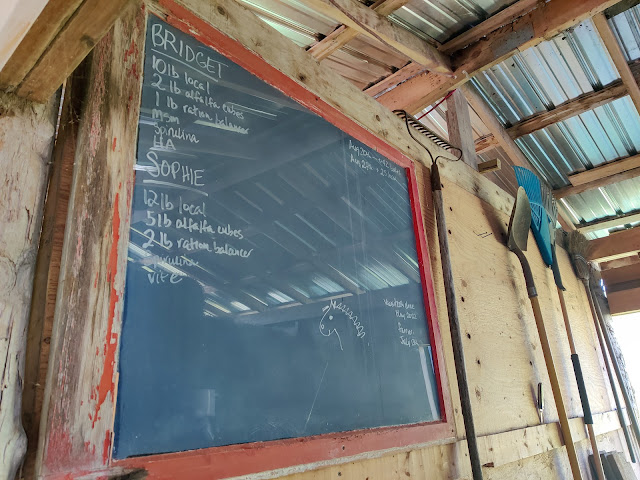 BRIDGET
10lb local
2 lb alfalfa cubes
1 lb ration balancer
msm
spirulina
HA
SOPHIE
12lb local
5lb alfalfa cubes
2lb ration balancer
spirulina
vit E
May 2022